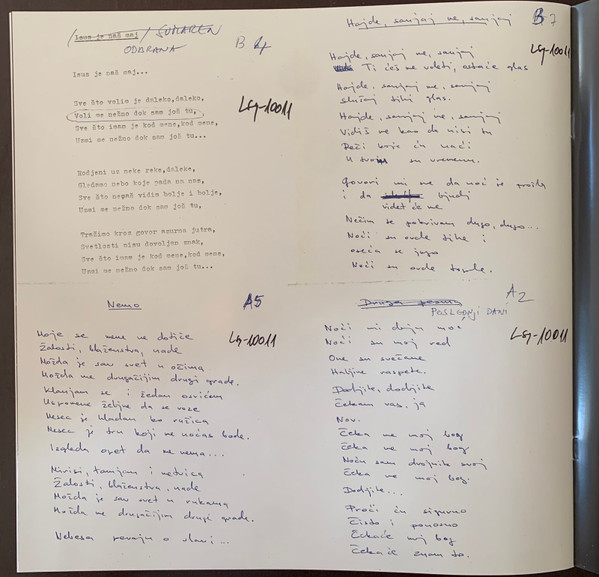 (Isus je naš maj / ŠUMAREN
ODABRANA
B 4
Isus je naš maj...
LG-10011
Sve što volim je daleko,daleko,
Voli me nežno dok sam još tu,
Sve što imam je kod mene,kod mene,
Uzmi me nežno dok sam još tu...
Rodjeni uz neke reke,daleke,
Gledamo nebo koje pada na nas,
Sve što nepaš vidim bolje i bolje,
Uzmi me nežno dok sam još tu,
Tražimo kroz govor sumorna jutra,
Svetlosti nisu dovoljan znak,
Sve što imam je kod mene,kod mene,
Uzmi me nežno dok sam još tu...
Hajde, sanjaj me, sanjaj
B 3
LG-10011
Hajde, sanjaj me, sanjaj
Ti ćeš me voleti, ostaće glas
Hajde, sanjaj me, sanjaj
slušaj tihi glas.
Hajde, sanjaj me, sanjaj
Vidiš me kao da nisi tu
Reči koje ću naći
U tvom su vremenu.
Govori mi ne da noć je prošla
i da ljudi
videt će me
Nečim se pokrivam dugo, dugo...
Noći su ovde tihe i
oseća se jugo
Noći su ovde
Nemo
A5
LG-10011
Moje se mene ne dotiče
Žalosti, blaženstva, nade
Možda je sav svet u očima
Možda me drugačijim drugi grade.
Klanjam se i žedan osvićem
Uspomene željne da se voze
Mesec je hladan ko ružica
Mesec je trn koji me noćas bode.
Izgleda opet da me nema...
Mirisi, tamjani i
Žalosti, blaženstva, nade
Možda je sav svet u rukama
Možda me drugačijim drugi grade.
Nebesa pevaju o slavi...
Druga pesma
POSLEDNJI DANI
A2
LG-10011
Noći mi daju moć
Noći su moj red
One su svečane
Haljine raspete.
Dodjite, dodjite
Čekam vas, ja
Nov.
Čeka me moj bog
Čeka me moj bog
Noću sam dvojnik svoj
Čeka me moj bog.
Dodjite...
Proći ću sigurno
Čisto i ponosno
Čekaće moj bog
Čekaće znam to.